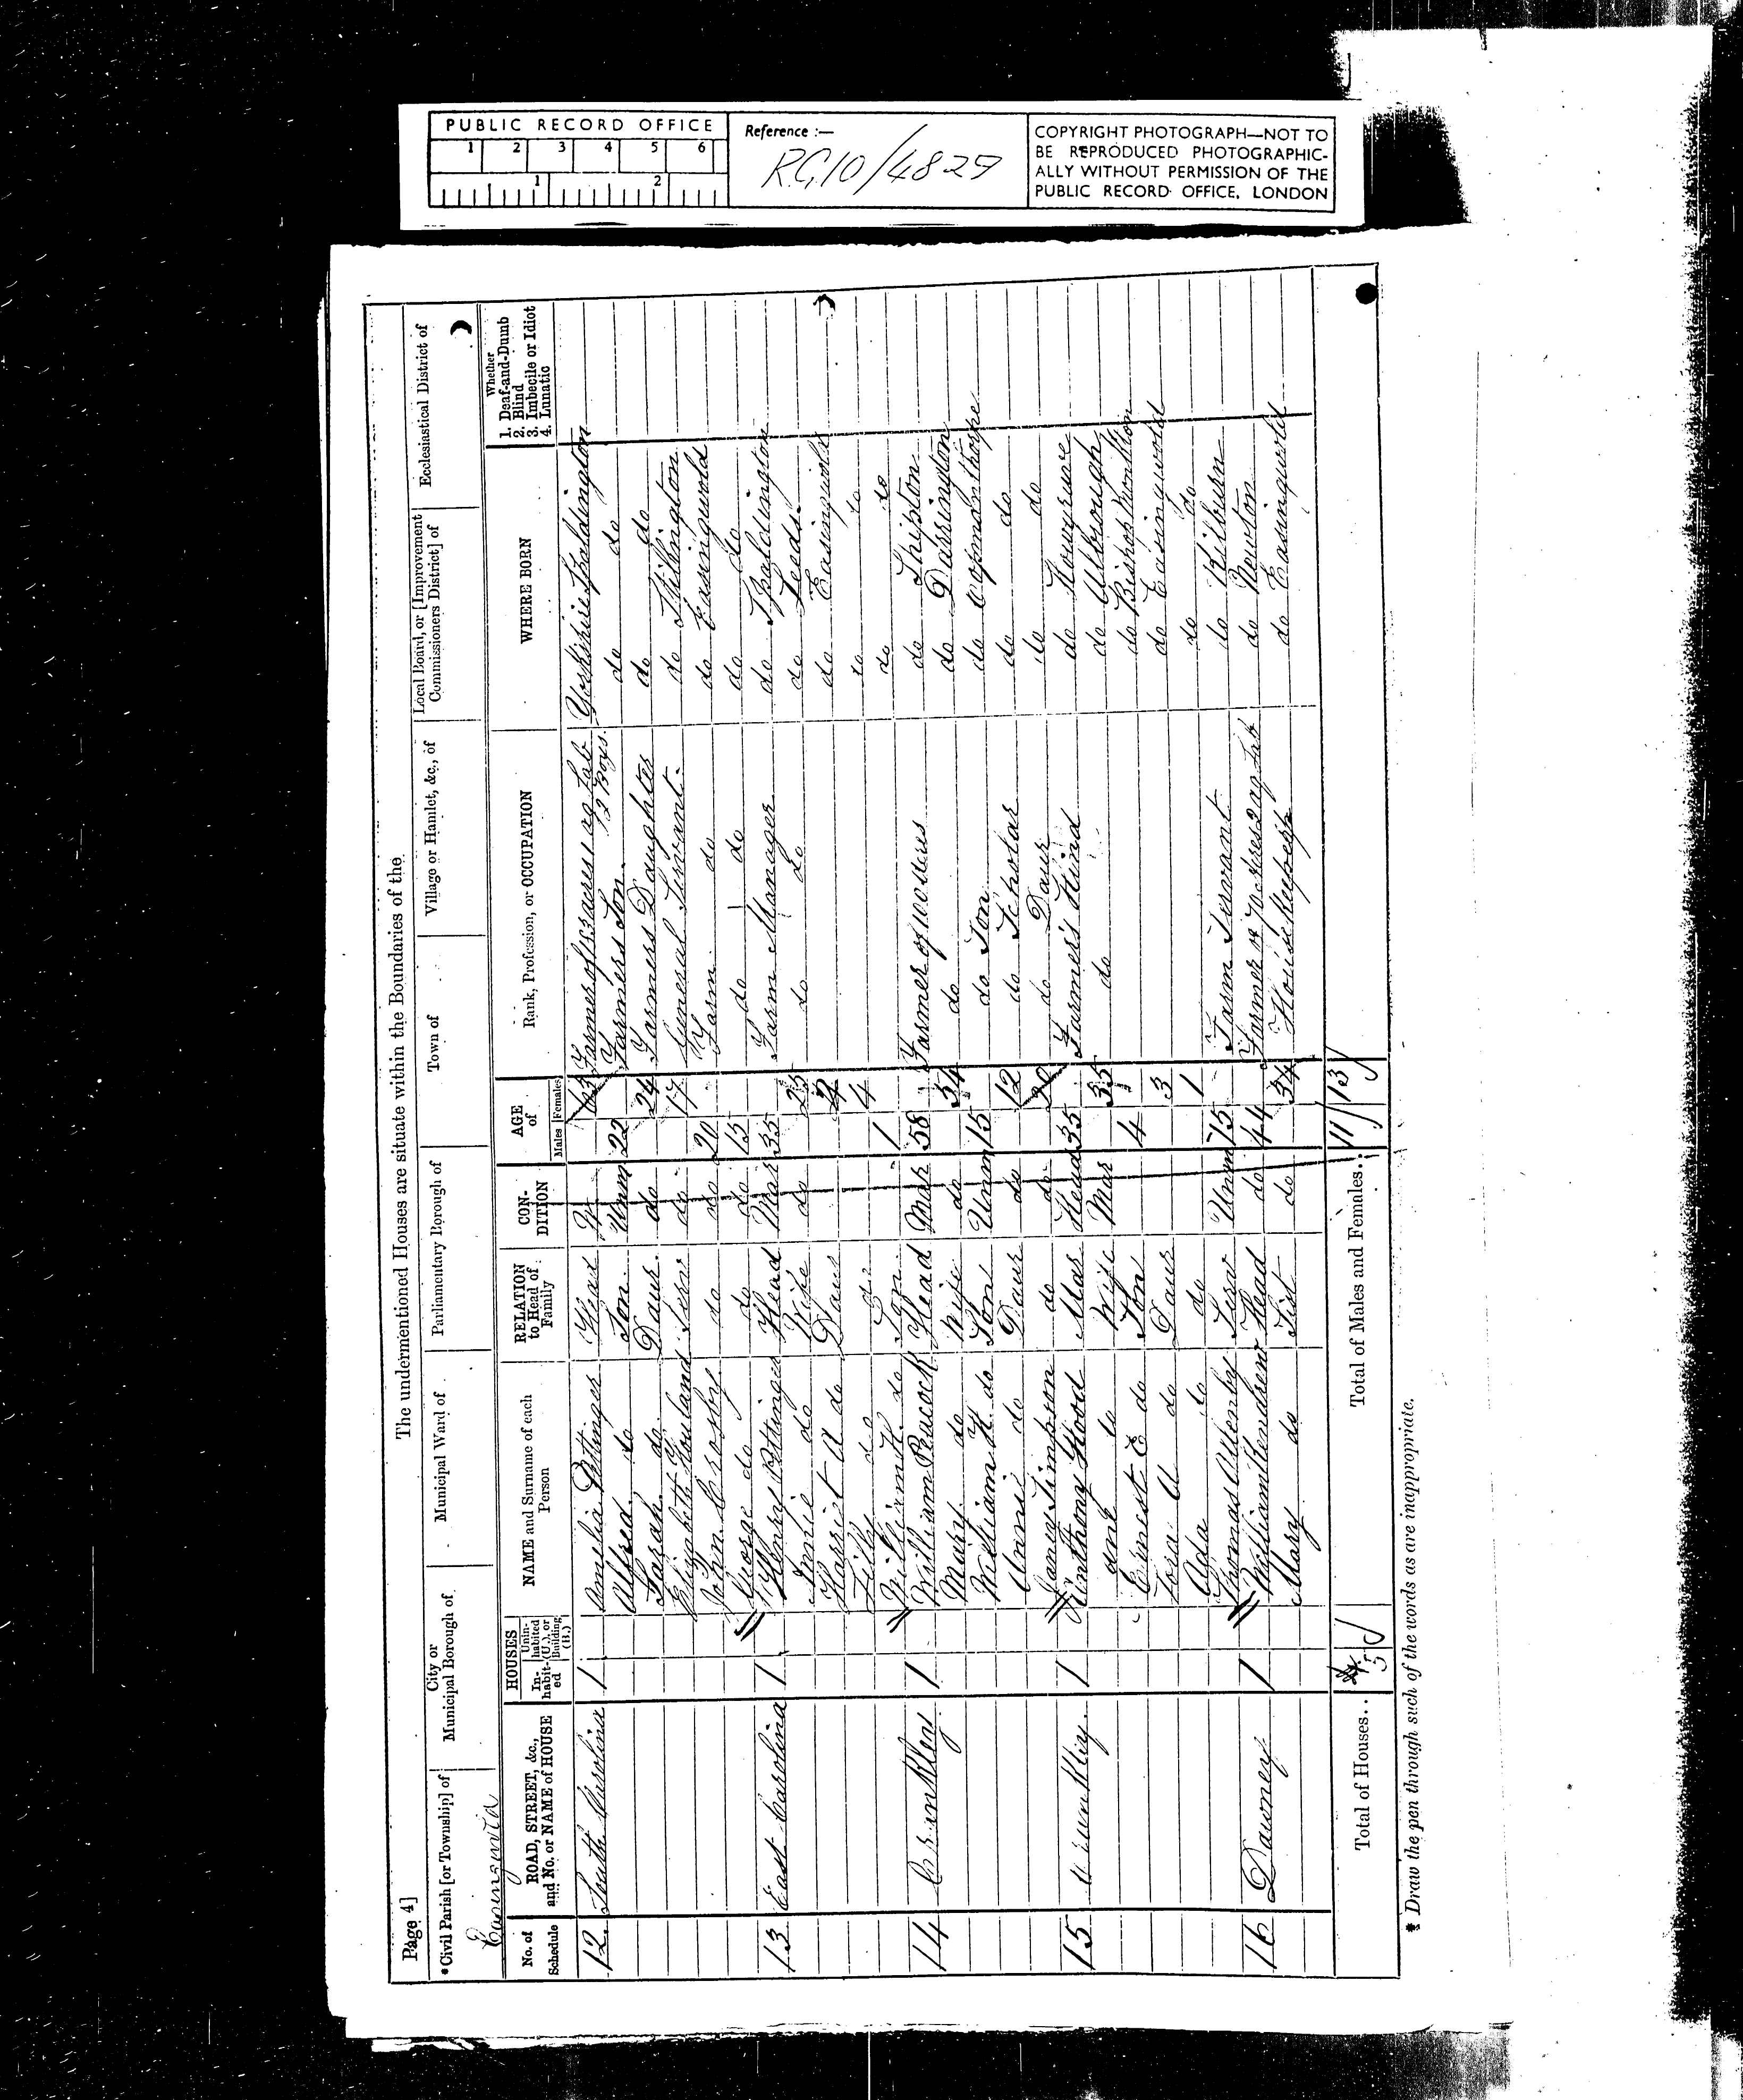 PUBLIC RECORD OFFICE
1 2 3 4 5 6
1 2
Reference :—
RG10/4829
COPYRIGHT PHOTOGRAPH—NOT TO
BE REPRODUCED PHOTOGRAPHIC-
ALLY WITHOUT PERMISSION OF THE
PUBLIC RECORD OFFICE, LONDON
Page 4]
The undermentioned Houses are situate within the Boundaries of the
*Civil Parish [or Township] of
City or Municipal Borough of
Municipal Ward of
Parliamentary Borough of
Town of
Village or Hamlet, &c., of
Local Board, or [Improvement Commissioners District] of
Ecclesiastical District of
Easingwold
No. of Schedule
ROAD, STREET, &c., and No. or NAME of HOUSE
HOUSES
In-habit-ed
Unin-habited (U.), or Building (B.)
NAME and Surname of each Person
RELATION to Head of Family
CON-DITION
AGE of
Males Females
Rank, Profession, or OCCUPATION
WHERE BORN
Whether
1. Deaf-and-Dumb
2. Blind
3. Imbecile or Idiot
4. Lunatic
12 South Carolina 1 Amelia Pottinger Head W 63 Farmer of 153 acres 1 ag Lab 2 Boys Yorkshire Spaldington
Alfred do Son Unm 22 Farmers Son do do
Sarah do Daur do 24 Farmers Daughter do do
Elizabeth Serv do 17 General Servant do Stilington
John Crosby do do 20 Farm do do Easingwold
George do do do 15 do do do do
13 East Carolina 1 Henry Pottinger Head Mar 35 Farm Manager do Spaldington
do Wife do 25 do do do Leeds
Harriet A do Daur 4 do Easingwold
do do 4 do do
William H. do Son 1 do do
14 1 William Peacock Head Mar 58 Farmer of 100 Acres do Shipton
Mary do Wife do 54 do do Darrington
William H. do Son Unm 15 do Son do Copmanthorpe
Annie do Daur do 12 do Scholar do do
Simpson do do 20 do Daur do do
15 1 Anthony Wood Mar Head 35 Farmer's Hind do
Jane do Wife Mar 35 do do
Ernest E do Son 4 do Bishop Monkton
A do Daur 3 do Easingwold
Ada do do 1 do do
Thomas Serv Unm 15 Farm Servant do Kilburn
16 Dawney 1 William Head do 44 Farmer of 70 Acres 2 ag Lab do Newton
Mary do Sist do 34 Housekeeper do Easingwold
Total of Houses.. 5
Total of Males and Females.. 11 13
* Draw the pen through such of the words as are inappropriate.